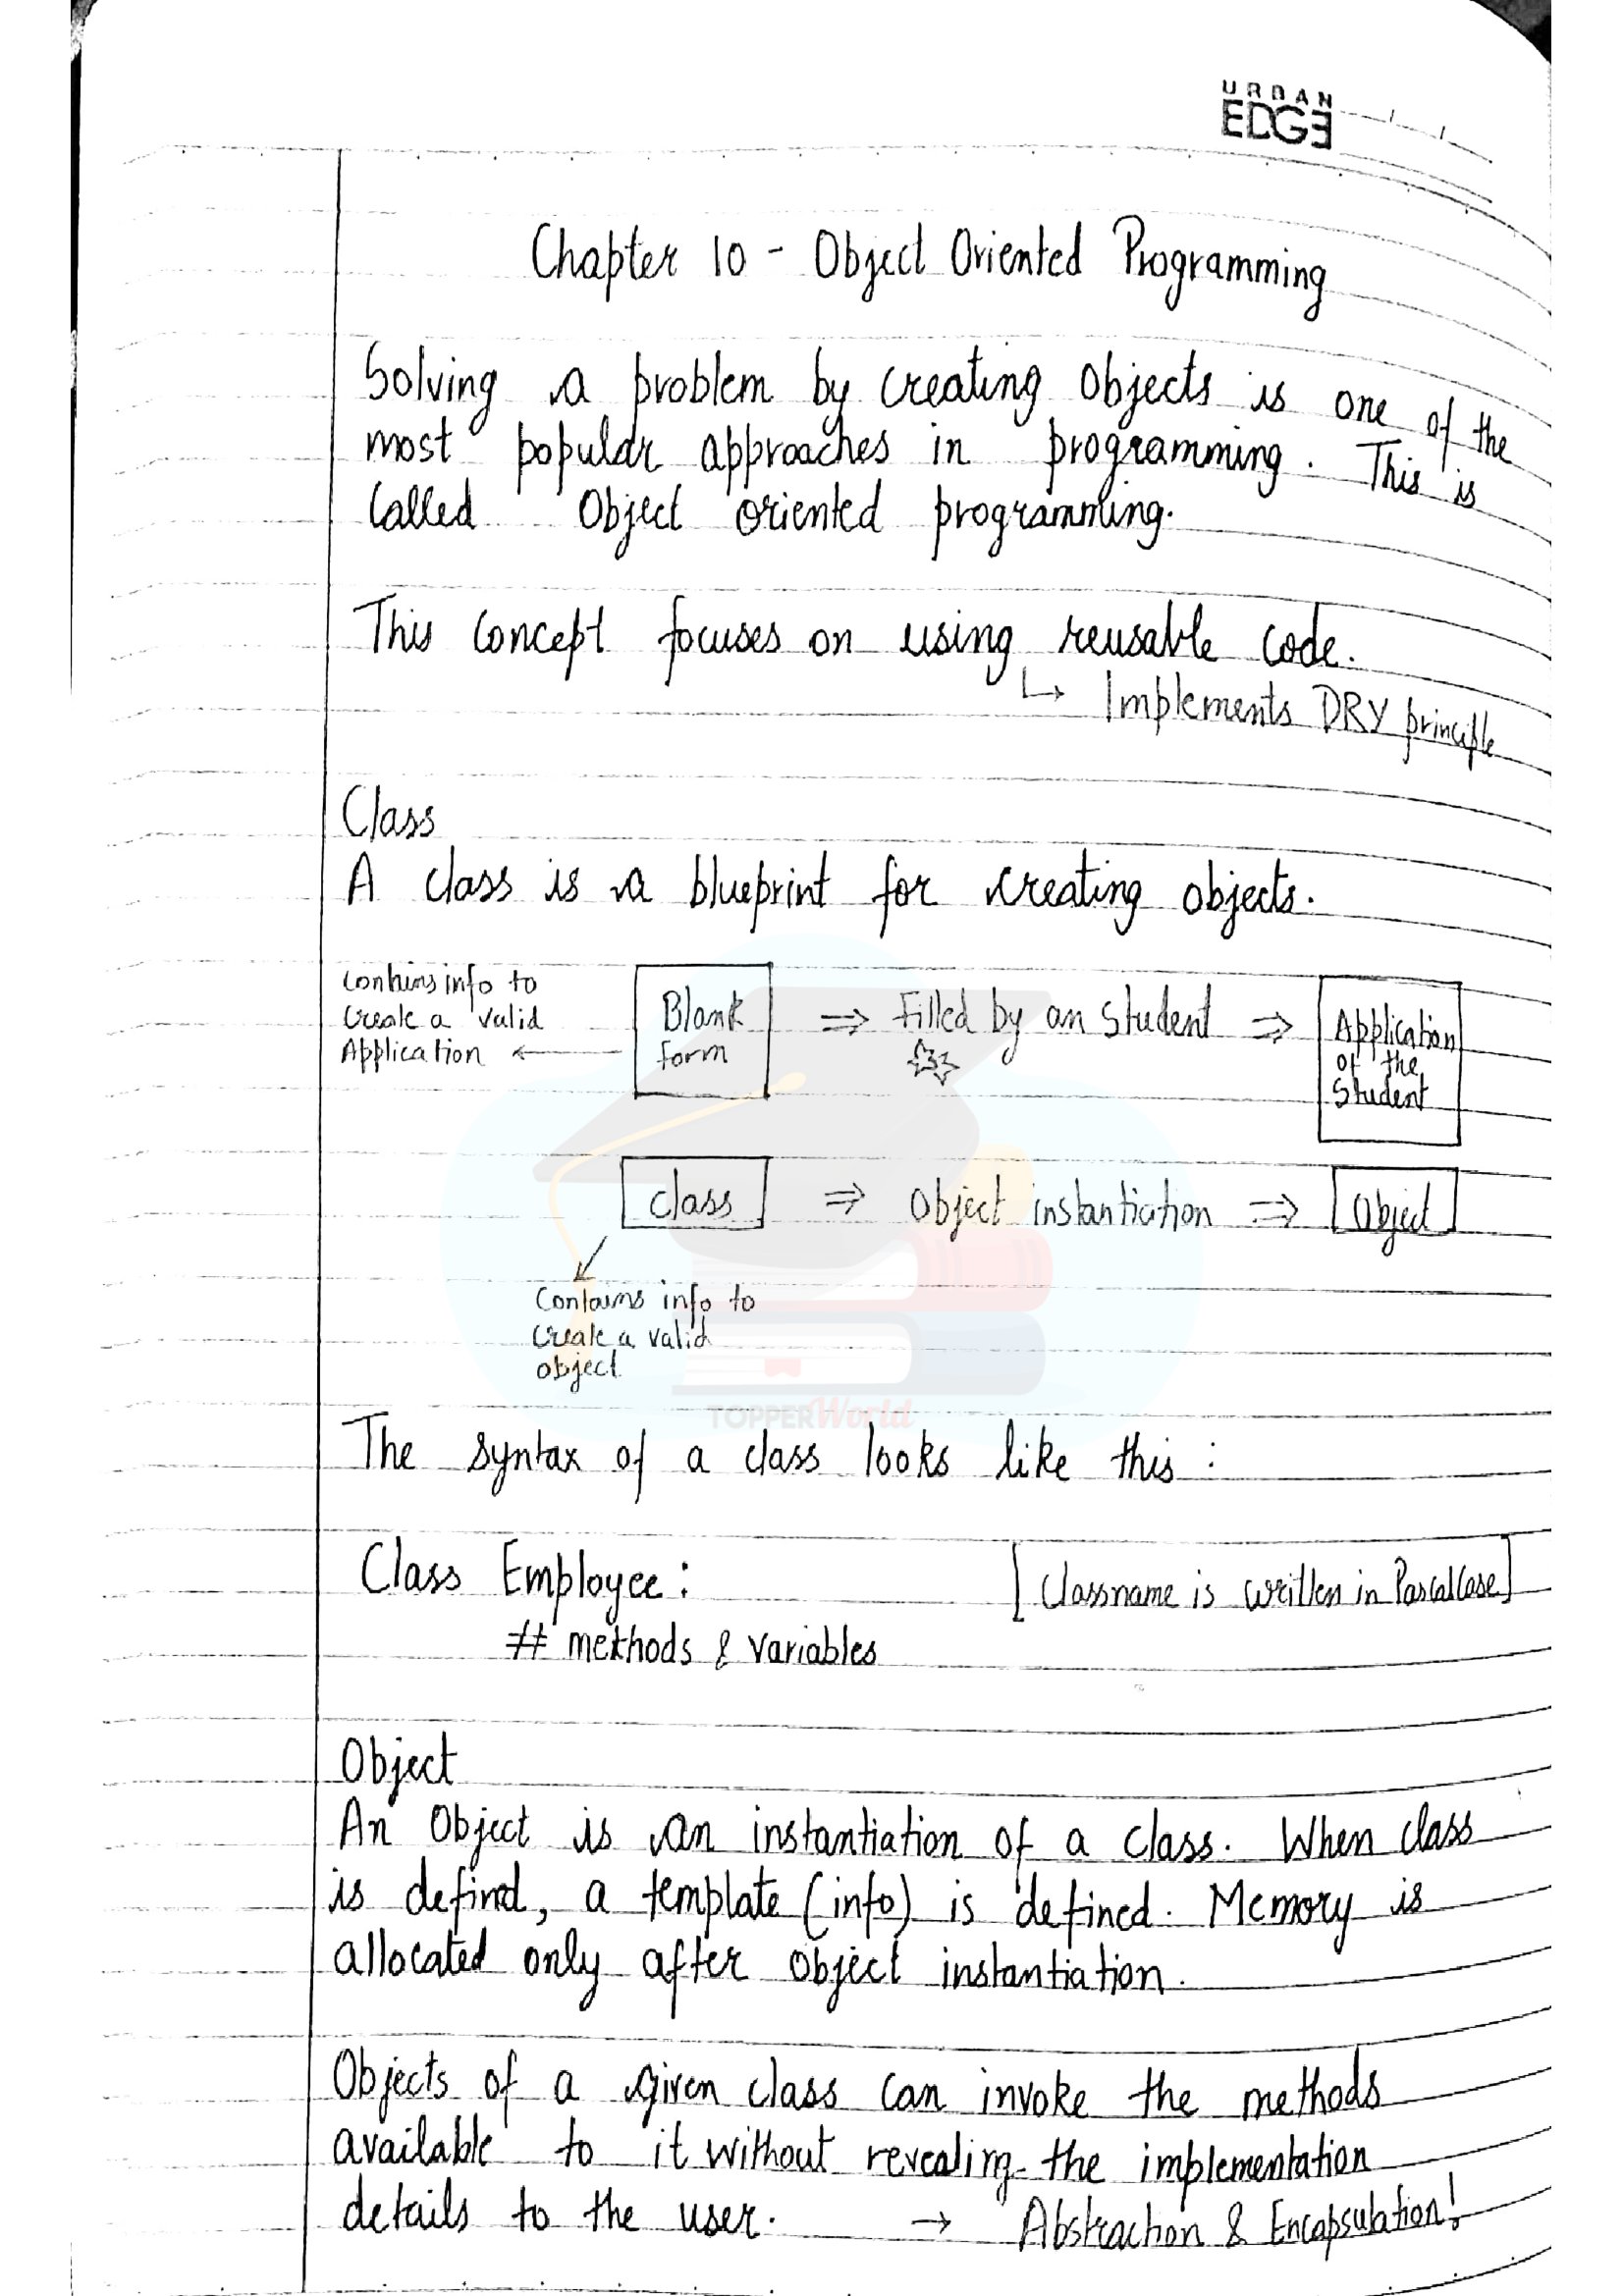 URBAN
EDGE
Chapter 10 - Object Oriented Programming
Solving a problem by creating objects is one of the
most popular approaches in programming. This is
called Object oriented programming.
This concept focuses on using reusable code.
↳ Implements DRY principle
Class
A class is a blueprint for creating objects.
Contains info to
Create a valid
Application ←
Blank
form
⇒ Filled by an Student ⇒
Application
of the
Student
class ⇒ Object instantiation ⇒ Object
Contains info to
Create a valid
object
TOPPERWorld
The syntax of a class looks like this :
Class Employee : [Classname is written in PascalCase]
# methods & variables
Object
An Object is an instantiation of a class. When class
is defined, a template (info) is defined. Memory is
allocated only after object instantiation.
Objects of a given class can invoke the methods
available to it without revealing the implementation
details to the user. → Abstraction & Encapsulation!